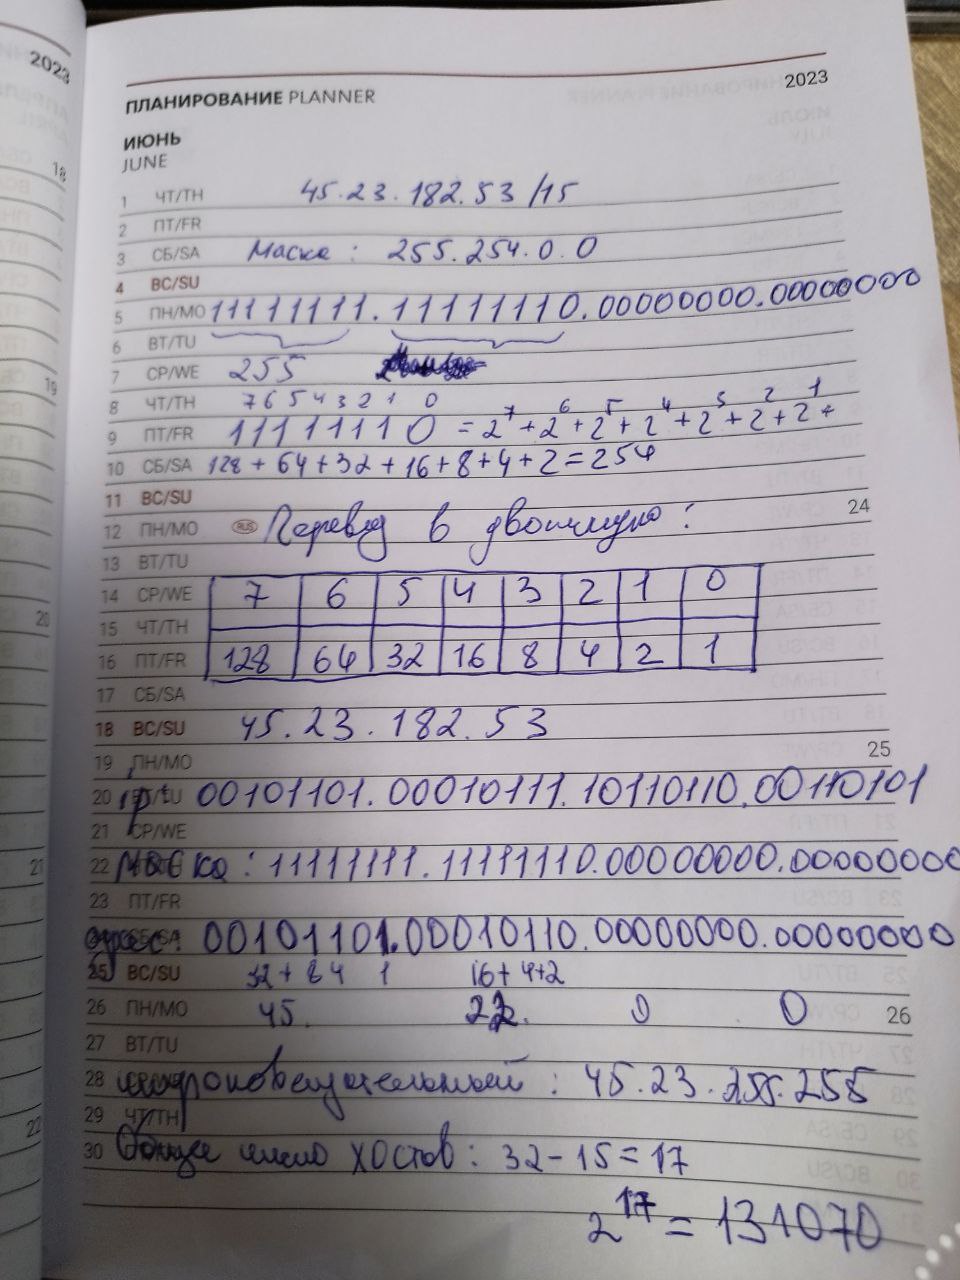 2023
2023
ПЛАНИРОВАНИЕ PLANNER
ИЮНЬ
JUNE
1 ЧТ/TH 45.23.182.53/15
2 ПТ/FR
3 СБ/SA Маска: 255.254.0.0
4 ВС/SU
5 ПН/MO 11111111.11111110.00000000.00000000
6 ВТ/TU
7 СР/WE 255
8 ЧТ/TH 7 6 5 4 3 2 1 0
9 ПТ/FR 11111110 = 2^7+2^6+2^5+2^4+2^3+2^2+2^1+
10 СБ/SA 128+64+32+16+8+4+2=254
11 ВС/SU
12 ПН/MO RUS Перевод в двоичную: 24
13 ВТ/TU
14 СР/WE 7 6 5 4 3 2 1 0
15 ЧТ/TH
16 ПТ/FR 128 64 32 16 8 4 2 1
17 СБ/SA
18 ВС/SU 45.23.182.53
19 ПН/MO 25
20 ВТ/TU ip: 00101101.00010111.10110110.00110101
21 СР/WE
22 маска: 11111111.11111110.00000000.00000000
23 ПТ/FR
СБ/SA адрес: 00101101.00010110.00000000.00000000
25 ВС/SU 32+84 1 16+4+2
26 ПН/MO 45. 22. 0 . 0 26
27 ВТ/TU
28 СР/WE широковещательный: 45.23.255.255
29 ЧТ/TH
30 Общее число хостов: 32-15=17
2^17 = 131070
18
19
20
21
22